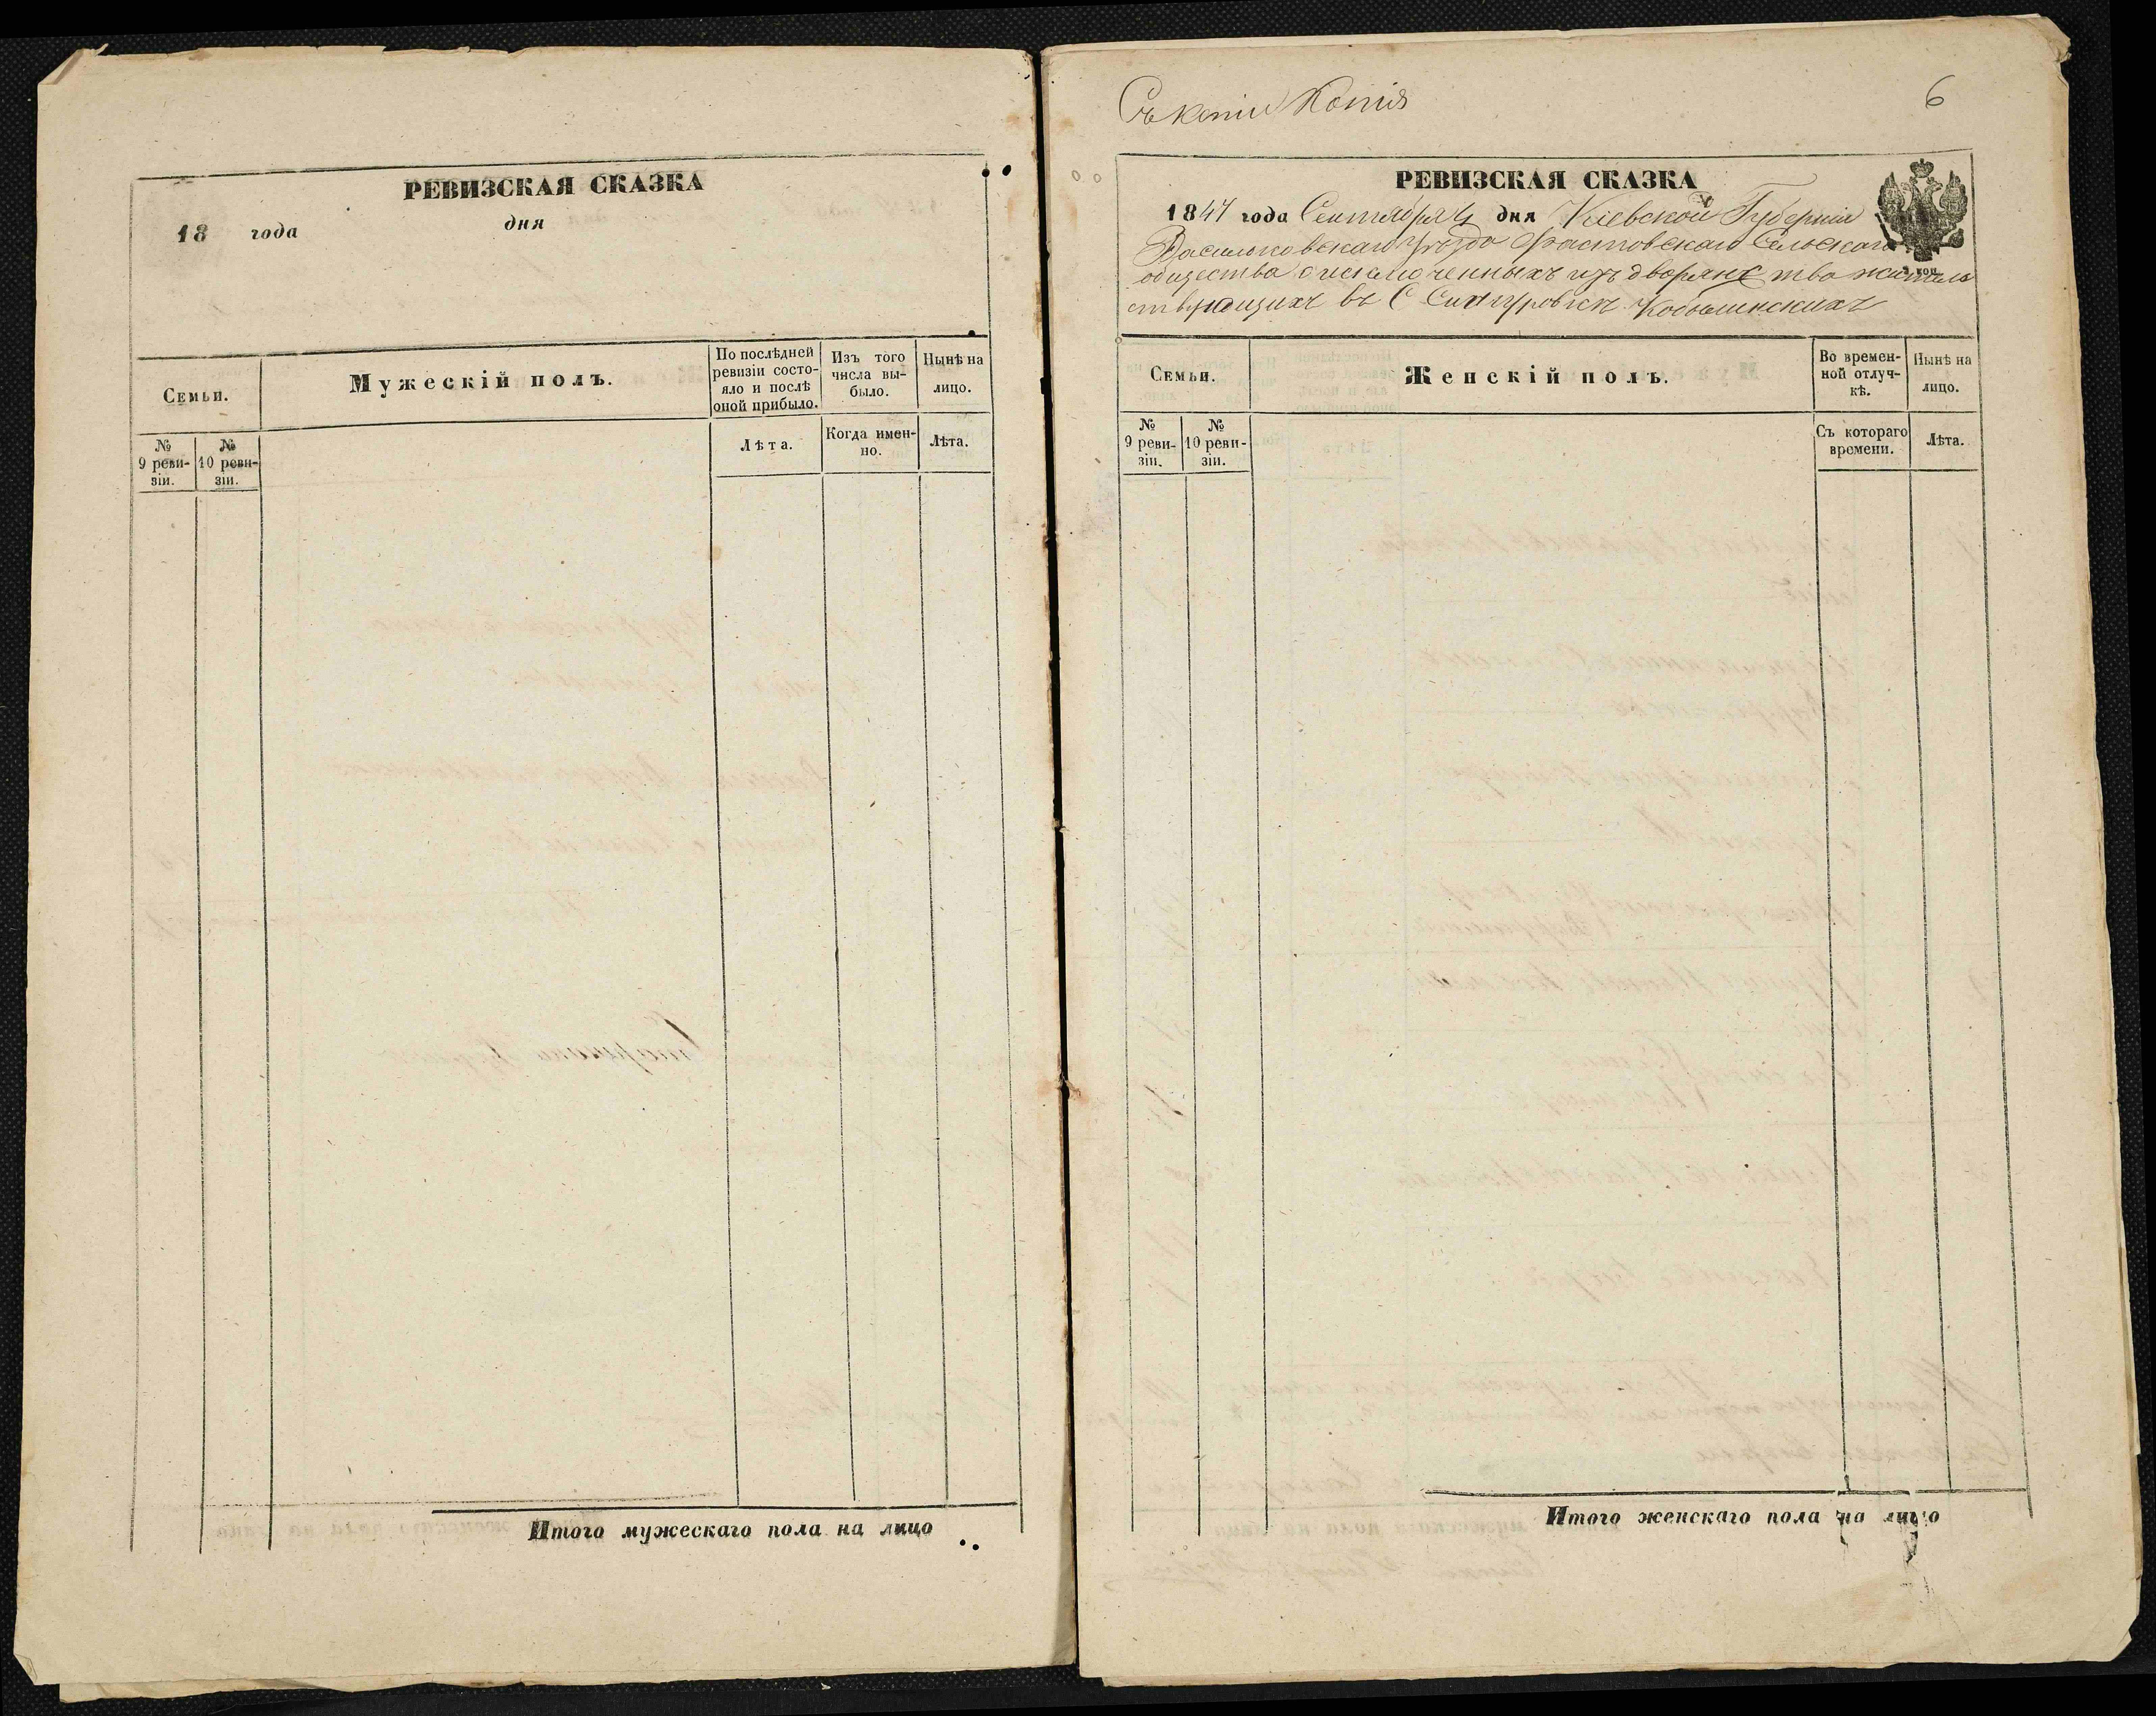 РЕВИЗСКАЯ СКАЗКА
18 года дня
Семьи.
Мужескій полъ.
По послѣдней ревизіи состо-
яло и послѣ
оной прибыло.
Изъ того
числа вы-
было.
Нынѣ на
лицо.
№
9 реви-
зіи.
№
10 реви-
зіи.
Лѣта.
Когда имен-
но.
Лѣта.
Итого мужескаго пола на лицо
Съ копіи Копія
6
РЕВИЗСКАЯ СКАЗКА
года Сентября 4 дня Кіевской Губерніи
Васильковскаго уѣзда Фастовскаго Сельскаго
общества о исключенныхъ изъ дворянства житель
ствующихъ въ С
2 коп
Семьи.
Женскій полъ.
Во времен-
ной отлуч-
кѣ.
Нынѣ на
лицо.
№
9 реви-
зіи.
№
10 реви-
зіи.
Съ котораго
времени.
Лѣта.
Итого женскаго пола на лицо